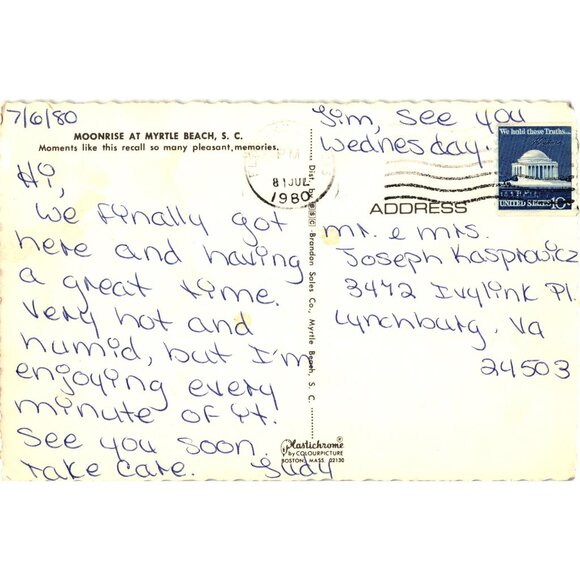 7/6/80
MOONRISE AT MYRTLE BEACH, S. C.
Moments like this recall so many pleasant memories.
Hi,
We finally got
here and having
a great time.
Very hot and
humid, but I'm
enjoying every
minute of it.
See you soon.
Take care. Judy
Jim, see you
Wednesday.
PM
8 JUL
1980
We hold these Truths...
UNITED STATES 10c
ADDRESS
Mr. & Mrs.
Joseph Kasprowicz
3472 Ivylink Pl.
Lynchburg, Va
24503
Dist. by Brandon Sales Co., Myrtle Beach, S. C.
Plastichrome®
by COLOURPICTURE
BOSTON, MASS. 02130